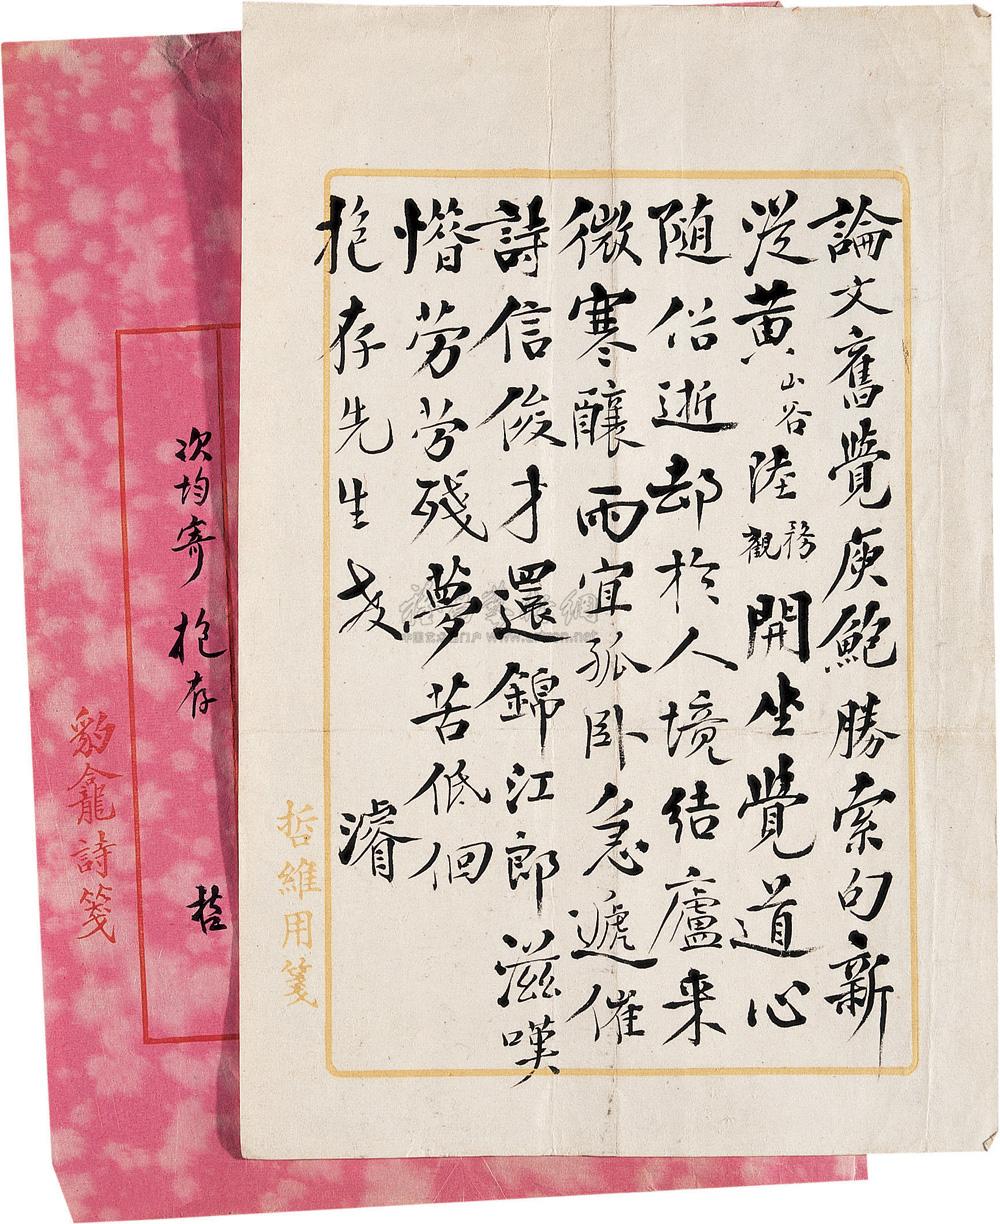 論文舊覺庾鮑勝索句新
從黃山谷陸務觀開坐覺道心
随俗逝却於人境結廬来
微寒釀雨宜孤卧急遞催
詩信俊才還錦江郎滋嘆
憯劳劳殘夢苦低佪
抱存先生教 濬
哲維用箋
次均寄 抱存
豹龕詩箋